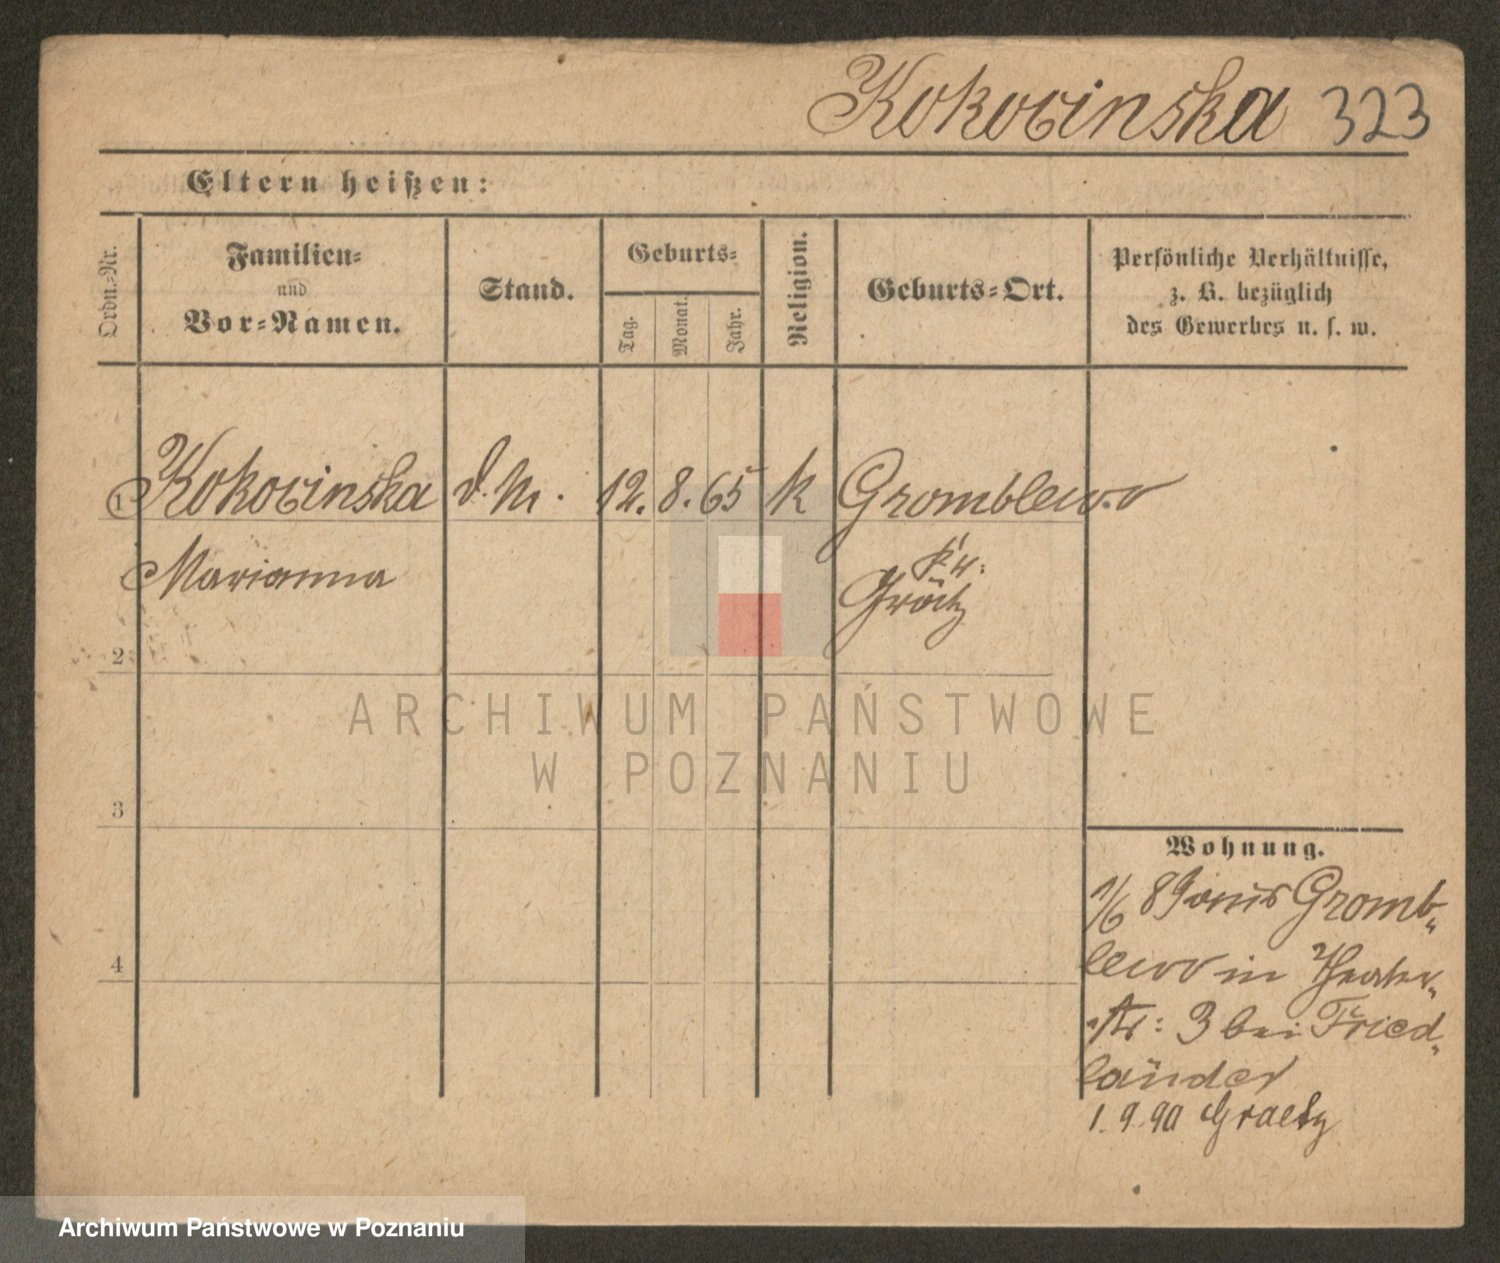 Kokocinska 323
Eltern heißen:
Ordn.-Nr.
Familien-
und
Vor-Namen.
Stand.
Geburts-
Tag.
Monat.
Jahr.
Religion.
Geburts-Ort.
Persönliche Verhältnisse,
z. B. bezüglich
des Gewerbes u. s. w.
1 Kokocinska d. M. 12. 8. 65 k Gromblewo
Marianna
Kr.
Grätz
2
ARCHIWUM PAŃSTWOWE
W POZNANIU
3
4
Wohnung.
1/6 89 aus Gromb-
lewo in Theater-
str: 3 bei Fried-
länder
1. 9. 90 Graetz
Archiwum Państwowe w Poznaniu